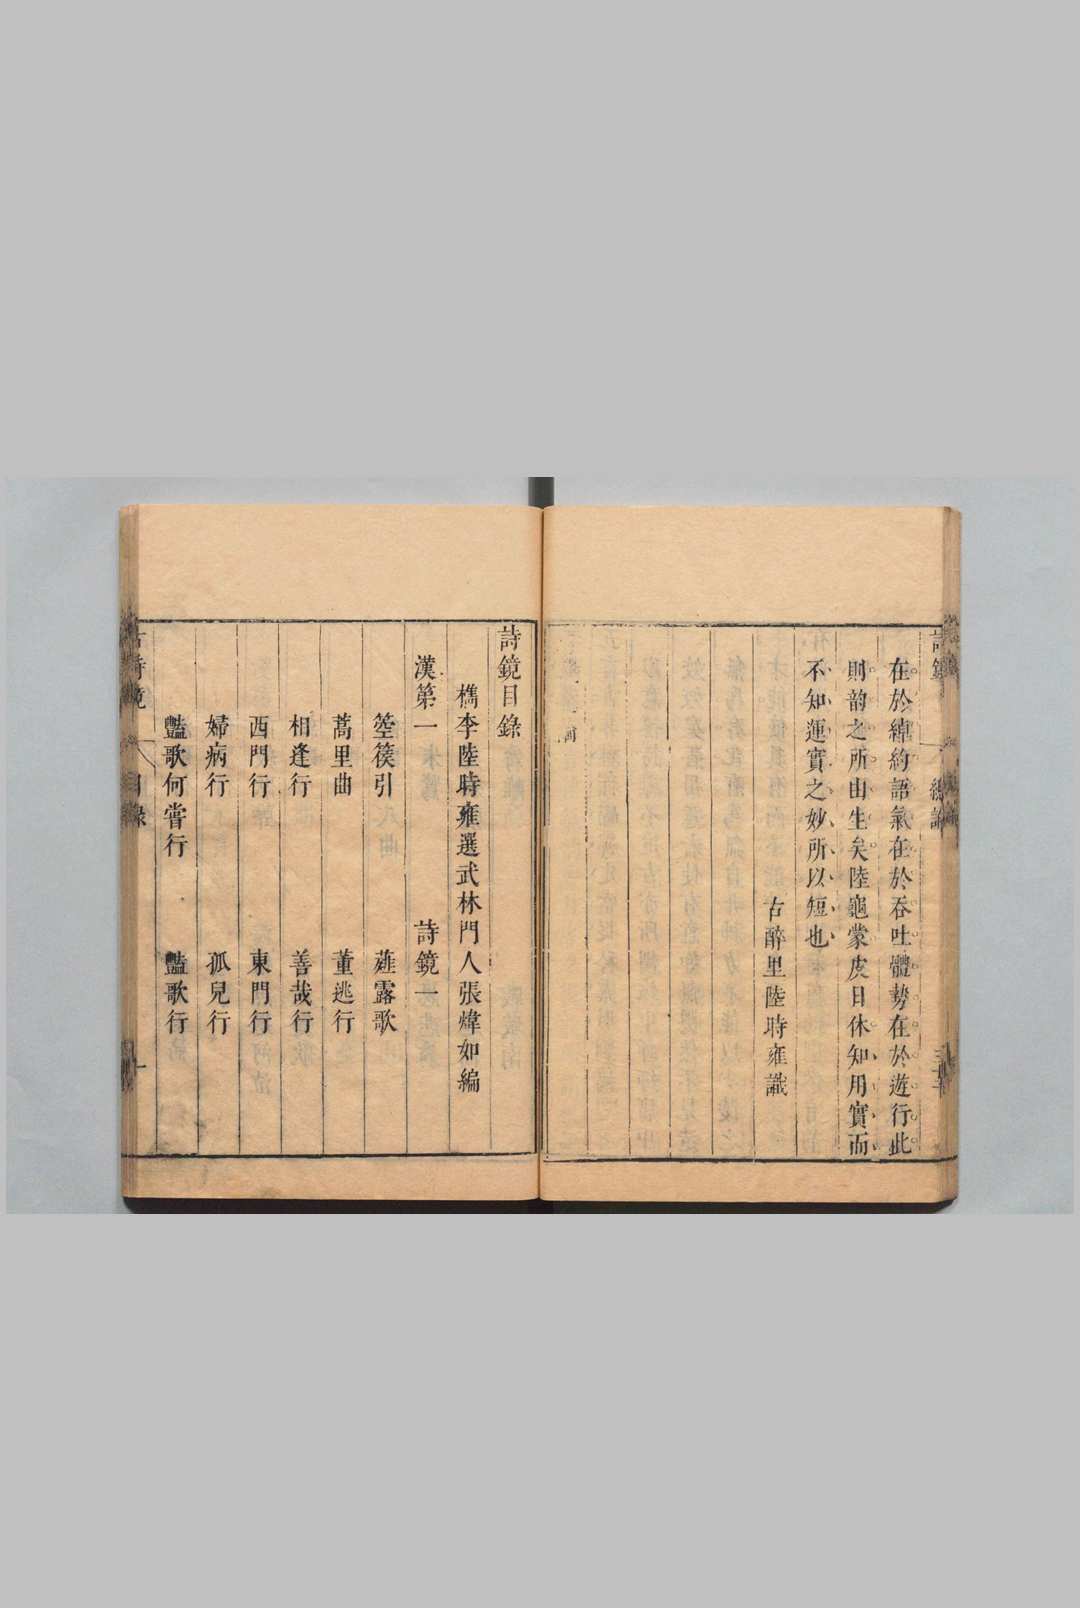 詩鏡
總論
在於綽約語氣在於吞吐體勢在於遊行此
則韵之所由生矣陸龜蒙皮日休知用實而
不知運實之妙所以短也
古醉里陸時雍識
詩鏡目錄
檇李陸時雍選武林門人張煒如編
漢第一 詩鏡一
箜篌引 薤露歌
蒿里曲 董逃行
相逢行 善哉行
西門行 東門行
婦病行 孤兒行
豔歌何嘗行 豔歌行
古詩鏡
目錄
一